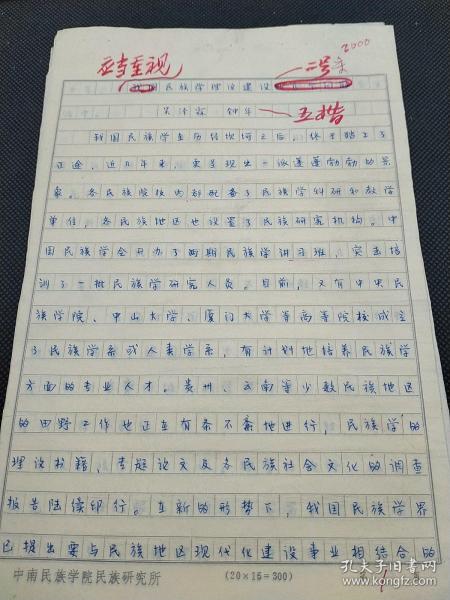 2000
应当重视
二号宋
我国民族学理论建设
吴泽霖 钟年
五楷
我国民族学在历经坎坷之后，终于踏上了
正途，近几年来，更呈现出一派蓬蓬勃勃的景
象。各民族院校内部配备了民族学科研和教学
单位，各民族地区也设置了民族研究机构。中
国民族学会开办了两期民族学讲习班，突击培
训了一批民族学研究人员。目前，又有中央民
族学院、中山大学、厦门大学等高等院校成立
了民族学系或人类学系，有计划地培养民族学
方面的专业人才。贵州、云南等少数民族地区
的田野工作也正在有条不紊地进行，民族学的
理论书籍，专题论文及各民族社会文化的调查
报告陆续印行。在新的形势下，我国民族学界
已提出要与民族地区现代化建设事业相结合的
中南民族学院民族研究所
(20×15=300)
1
孔夫子旧书网